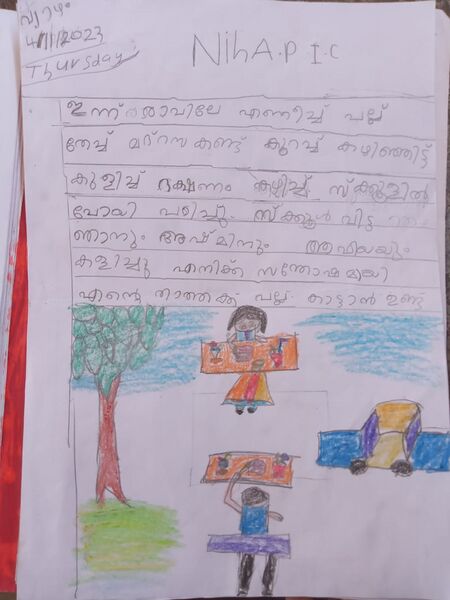 വ്യാഴം
4/1/2023
Thursday
NihA.P I.C
ഇന്ന് രാവിലേ എണീച്ച് പല്ല്
തേച്ച് മദ്റസ കണ്ട് കുറച്ച് കഴിഞ്ഞിട്ട്
കുളിച്ച് ഭക്ഷണം കഴിച്ച് സ്ക്കൂളിൽ
പോയി പഠിച്ചു. സ്ക്കൂൾ വിട്ട
ഞാനും അഷ്മിനും ആഫിയയും
കളിച്ചു എനിക്ക് സന്തോഷമായി
എന്റെ താത്തക്ക പല്ല് കാട്ടാൻ ഉണ്ട്